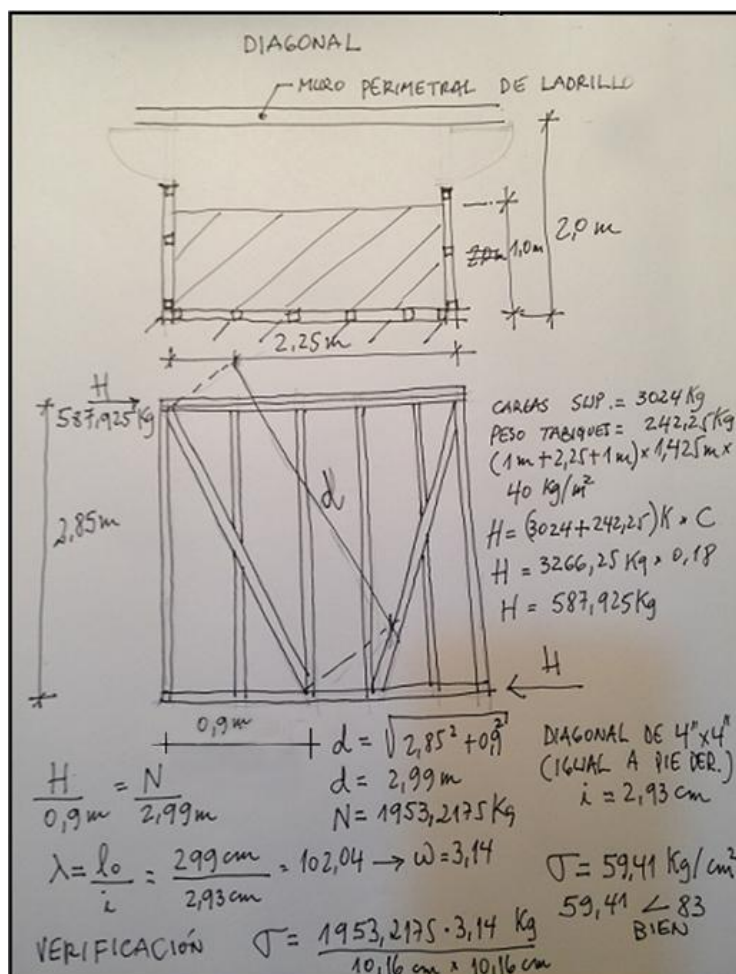 DIAGONAL
MURO PERIMETRAL DE LADRILLO
2,0 m
2,0m 1,0m
2,25m
H
587,925 Kg
d
2,85m
CARGAS SUP. = 3024 Kg
PESO TABIQUES = 242,25Kg
(1m + 2,25 + 1m) × 1,425m ×
40 Kg/m²
H = (3024 + 242,25) K × C
H = 3266,25 Kg × 0,18
H = 587,925Kg
H
0,9m
d = √2,85² + 0,9²
d = 2,99m
N = 1953,2175 Kg
DIAGONAL DE 4"x4"
(IGUAL A PIE DER.)
i = 2,93 cm
H/0,9m = N/2,99m
λ = lo/i = 299cm/2,93cm = 102,04 → ω = 3,14
σ = 59,41 Kg/cm²
59,41 < 83
BIEN
VERIFICACIÓN σ = 1953,2175 · 3,14 Kg
10,16 cm x 10,16 cm